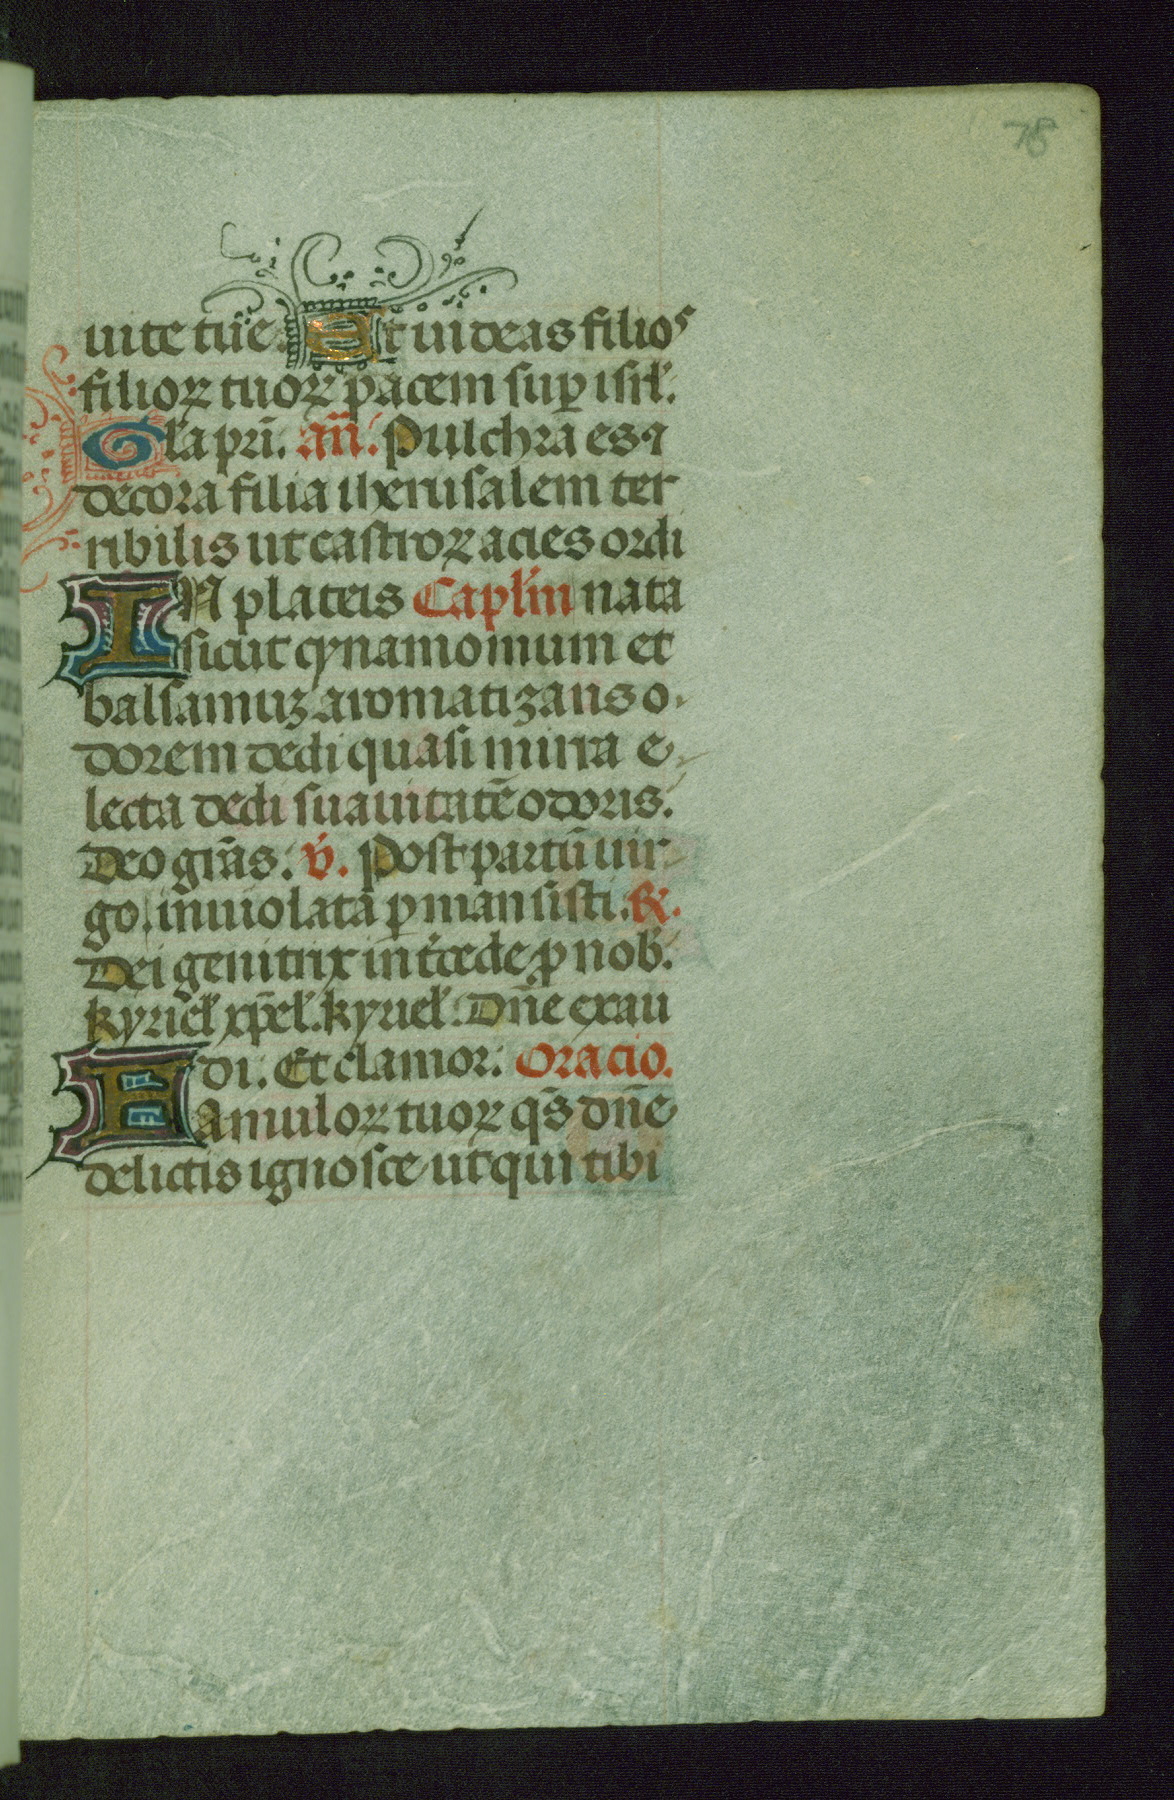 78
uite tue. Et uideas filios
filioꝝ tuoꝝ pacem suꝑ isrl'.
Gl'a pri. añ. Pulchra es ⁊
decora filia iherusalem ter
ribilis ut castroꝝ acies ordi
IN plateis Capl'm nata
sicut cynamomum et
balsamuz aromatizans o
dorem dedi quasi mirra e
lecta dedi suauitatē odoris.
Deo grās. ℣. Post partū uir
go inuiolata ꝑmansisti. ℟.
Dei genitrix intcede ꝓ nob'.
kyriel' xp̄el'. kyriel'. Dn̄e exau
di. Et clamor. Oracio.
FAmuloꝝ tuoꝝ qs̄ dn̄e
delictis ignosce ut qui tibi